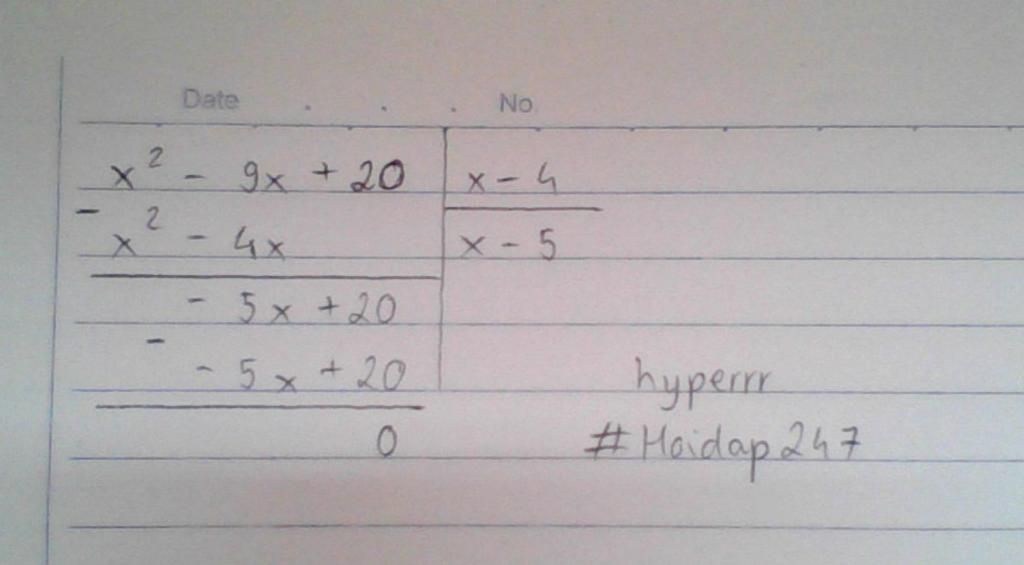 Date . . . No
x² - 9x + 20 | x - 4
- x² - 4x | x - 5
- 5x + 20
- - 5x + 20
0
hyperrr
#Hoidap247